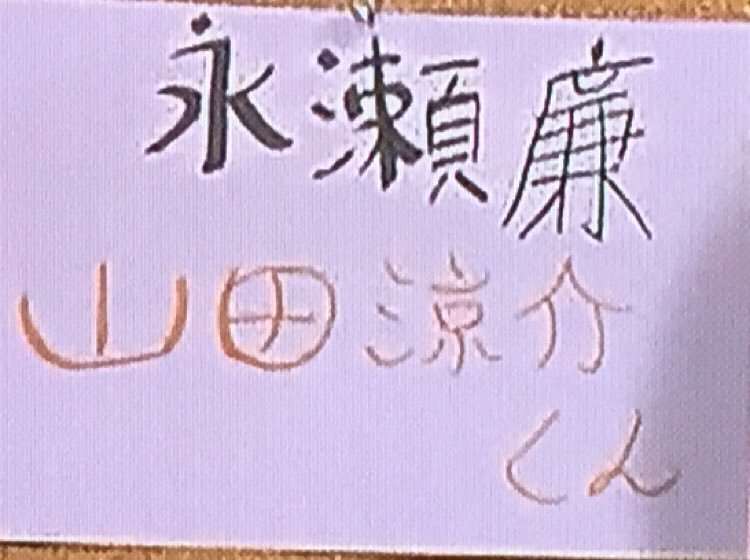 永瀬廉
山田涼介
くん